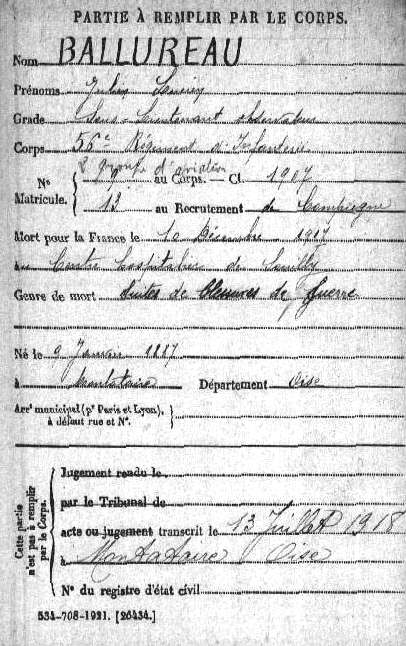 PARTIE À REMPLIR PAR LE CORPS.
Nom BALLUREAU
Prénoms Jules
Grade Sous-Lieutenant observateur
Corps 56e Régiment d'Infanterie
2e groupe d'aviation
No au Corps. — Cl. 1907
Matricule. 13 au Recrutement de Compiègne
Mort pour la France le 10 Décembre 1917
au Centre hospitalier de
Genre de mort Suites de blessures de guerre
Né le 9 Janvier 1887
à Montataire Département Oise
Arrt municipal (pr Paris et Lyon),
à défaut rue et No.
Cette partie
n'est pas à remplir
par le Corps.
Jugement rendu le
par le Tribunal de
acte ou jugement transcrit le 13 Juillet 1918
à Montataire Oise
No du registre d'état civil
534-708-1921. [26434.]